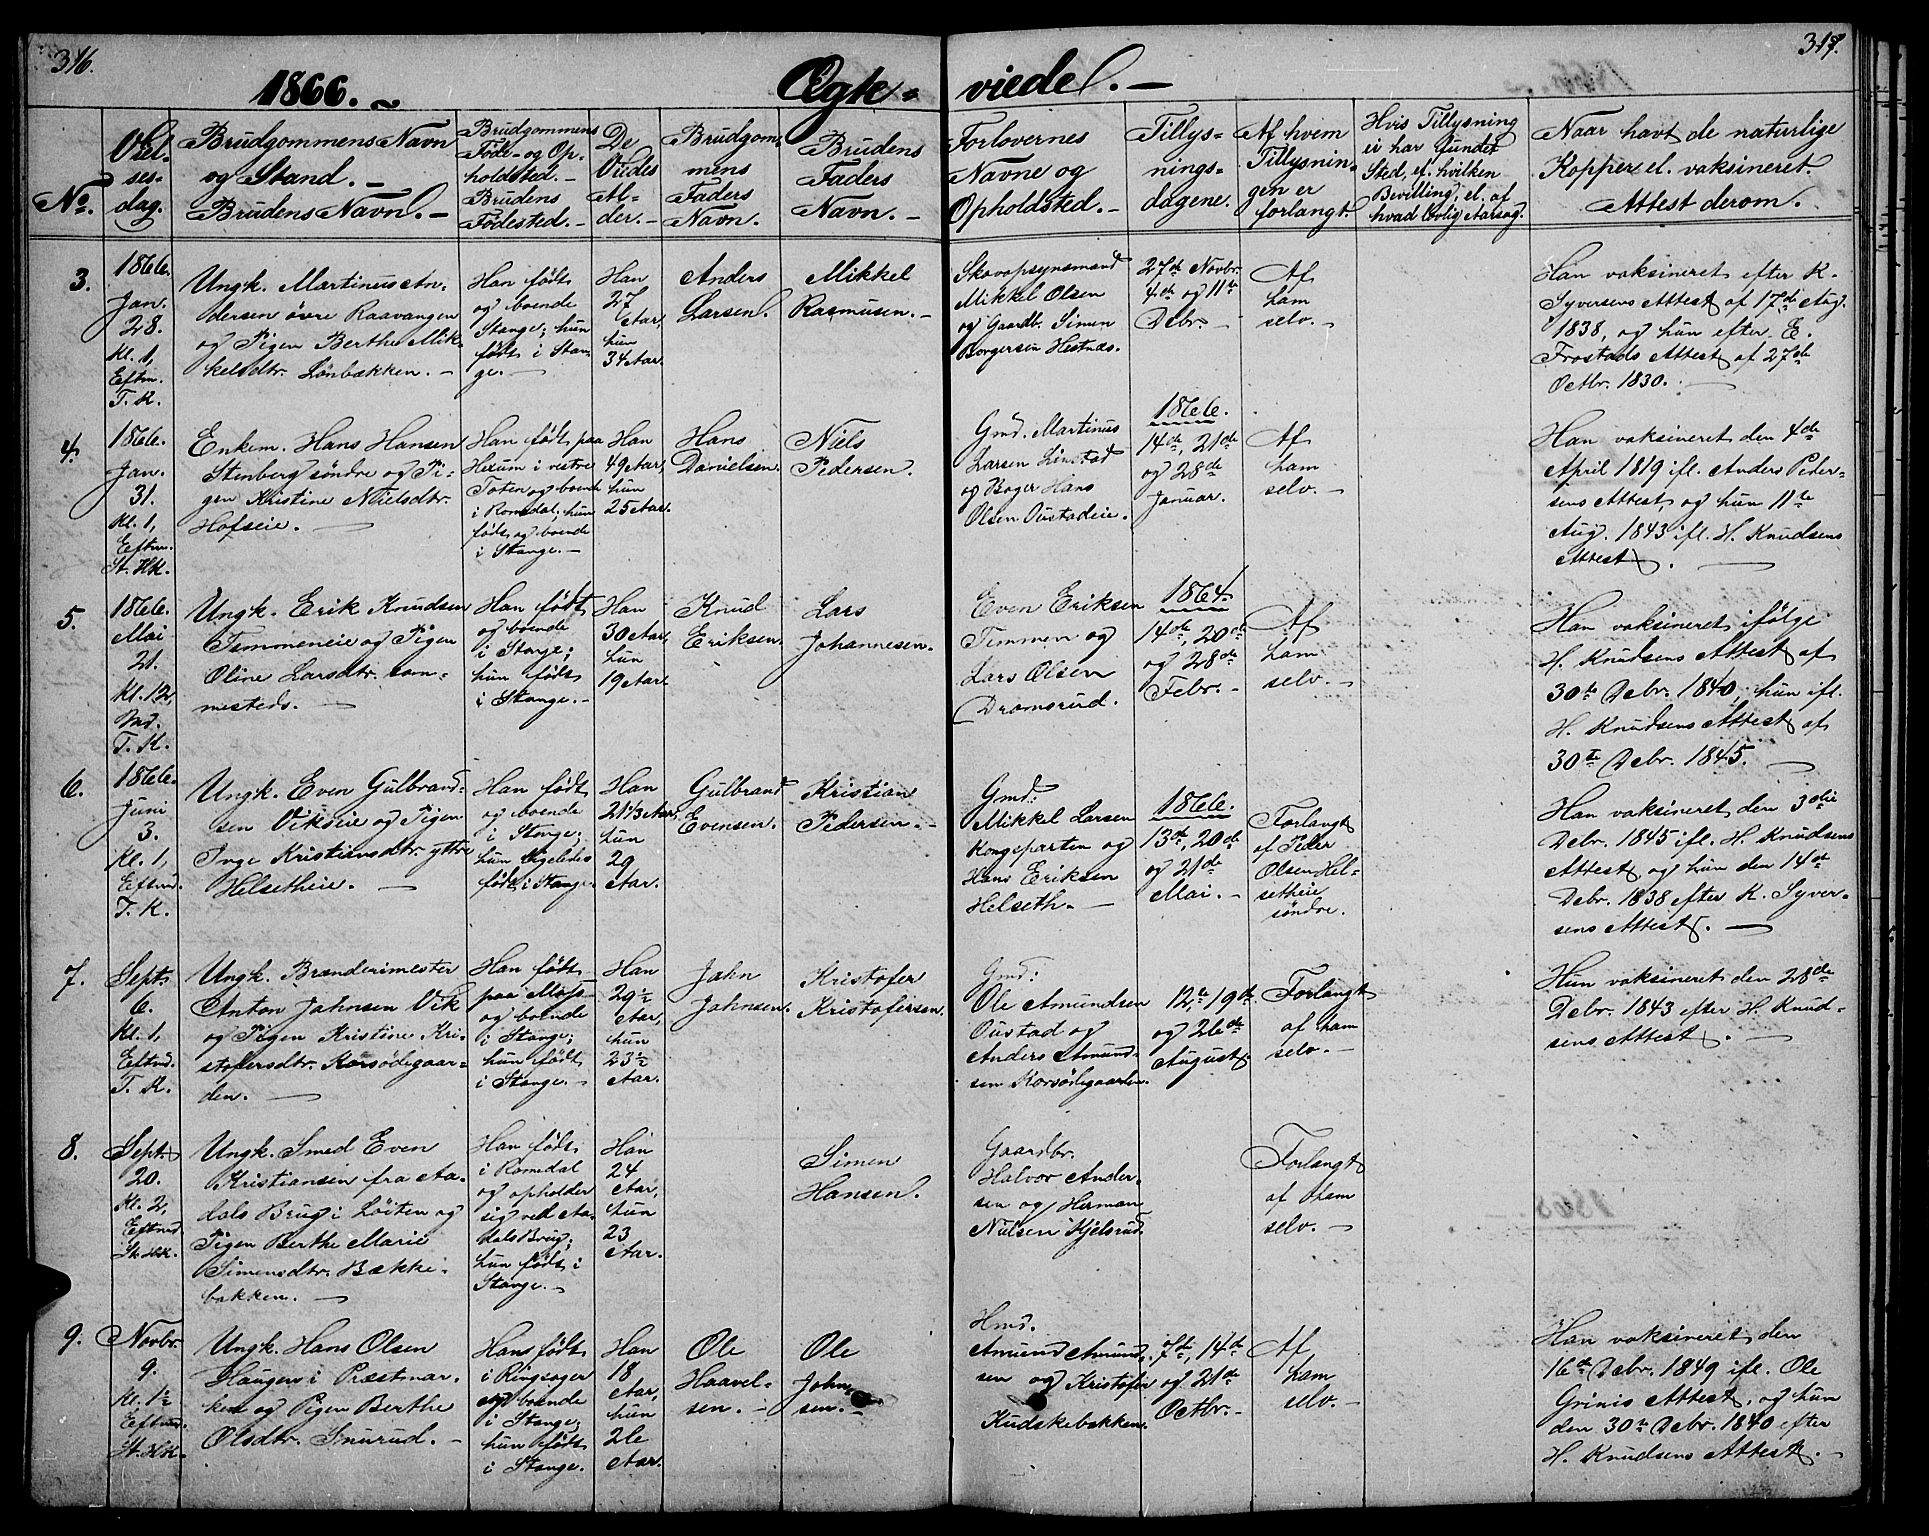 316.
317.
1866.
Ægte-
viede.
No.
Viel-
ses-
dag.
Brudgommens Navn
og Stand.
Brudens Navn.
Brudgommens
Føde- og Op-
holdsted.
Brudens
Fødested.
De
Viedes
Al-
der.
Brudgom-
mens
Faders
Navn.
Brudens
Faders
Navn.
Forlovernes
Navne og
Opholdsted.
Tillys-
nings-
dagene.
Af hvem
Tillysnin-
gen er
forlangt.
Hvis Tillysning
ei har fundet
Sted, ef. hvilken
Bevilling; el. af
hvad lovlig Aarsag.
Naar havt de naturlige
Kopper el. vaksineret.
Attest derom.
3.
1866.
Jan.
28.
Kl. 1,
Eftm.
T. K.
Ungk. Martinus An-
dersen øvre Raavangen
og Pigen Berthe Mik-
kelsdtr. Lönbækken.
Han født
og boende
Stange; hun
født i Stan-
ge.
Han
27
Aar,
hun
34 Aar.
Anders
Larsen.
Mikkel
Rasmusen.
Skovopsynsmand
Mikkel Olsen
og Gaardb. Simen
Borgersen Hestnæs.
27de Novbr.
4de og 11te
Debr.
Af
ham
selv.
Han vaksineret efter K.
Syversens Attest af 17de Aug.
1838, og hun efter E.
Frostads Attest af 27de
Octbr. 1830.
4.
1866.
Jan.
31.
Kl. 1,
Eftm.
St. HK.
Enkem. Hans Hansen
Stenberg söndre og Pi-
gen Kristine Nielsdtr.
Hofseie.
Han født paa
Hexum i vestre
Toten og boende
i Romedal, hun
født og boende
i Stange.
Han
49 Aar,
hun
25 Aar.
Hans
Danielsen.
Niels
Pedersen.
Gmd. Martinus
Larsen Linstad
og Bager Hans
Olsen Oustadeie.
1866.
14de, 21de
og 28de
Januar.
Af
ham
selv.
Han vaksineret den 4de
April 1819 ifl. Anders Peder-
sens Attest, og hun 11te
Aug. 1843 ifl. H. Knudsens
Attest.
5.
1866.
Mai
21.
Kl. 12,
Md.
T. K.
Ungk. Erik Knudsen
Tommeneie og Pigen
Oline Larsdtr. sam-
mesteds.
Han født
og boende
i Stange;
hun født
i Stange.
Han
30 Aar,
hun
19 Aar.
Knud
Eriksen.
Lars
Johannesen.
Even Eriksen
Timmen og
Lars Olsen
Dramsrud.
1864.
14de, 20de
og 28de
Febr.
Af
ham
selv.
Han vaksineret ifölge
H. Knudsens Attest af
30te Debr. 1840, hun ifl.
H. Knudsens Attest af
30te Debr. 1845.
6.
1866.
Juni
3.
Kl. 1,
Eftmd.
T. K.
Ungk. Even Gulbrand-
sen Vikseie og Pigen
Inge Kristiansdtr. yttre
Helsetheie.
Han født
og boende
i Stange;
hun ligeledes
født i Stange.
Han
21 1/3 Aar,
hun
29
Aar.
Gulbrand
Evensen.
Kristian
Pedersen.
Gmd:
Mikkel Larsen
Kongeparten og
Hans Eriksen
Helseth.
1866.
13de, 20de
og 21de
Mai.
Forlangt
af Peder
Olsen Hel-
setheie
söndre.
Han vaksineret den 30te
Debr. 1845 ifl. H. Knudsens
Attest, og hun den 14de
Debr. 1838 efter K. Syver-
sens Attest.
7.
Sept.
6.
Kl. 1,
Eftmd.
T. K.
Ungk. Brænderimester
Anton Jahnsen Vik
og Pigen Kristine Kri-
stofersdtr. Korsödegaar-
den.
Han født
paa Moss
og boende
i Stange;
hun født
i Stange.
Han
29½
Aar,
hun
23½
Aar.
Jahn
Jahnsen.
Kristofer
Kristofersen.
Gmd:
Ole Amundsen
Oustad og
Anders Amund-
sen Korsödegaarden.
12te, 19de
og 26de
August.
Forlangt
af ham
selv.
Hun vaksineret den 28de
Debr. 1843 efter H. Knud-
sens Attest.
8.
Sept.
20.
Kl. 2,
Eftmd.
St. HK.
Ungk. Smed Even
Kristiansen fra Aa-
dals Brug i Löiten og
Pigen Berthe Marie
Simensdtr. Bække-
bakken.
Han født
i Romedal
og opholder
sig ved Aa-
dals Brug;
hun født i
Stange.
Han
24
Aar,
hun
23
Aar.
Simen
Hansen.
Gaardbr.
Halvor Ander-
sen og Herman
Nielsen Hjelsrud.
Forlangt
af ham
selv.
9.
Novbr.
9.
Kl. 1½
Eftmd.
St. HK.
Ungk. Hans Olsen
Haugen i Præstmar-
ken og Pigen Berthe
Olsdtr. Snurud.
Hans født
i Ringsager
og boende
i Stange;
hun født
i Stange.
Han
18
Aar,
hun
26
Aar.
Ole
Haavel-
sen.
Ole
John-
sen.
Hmd.
Amund Amund-
sen og Kristofer
Kudskebakken.
7de, 14de
og 21de
Octbr.
Af
ham
selv.
Han vaksineret den
16de Debr. 1849 ifl. Ole
Grinis Attest, og hun
den 30te Debr. 1840 efter
H. Knudsens Attest.